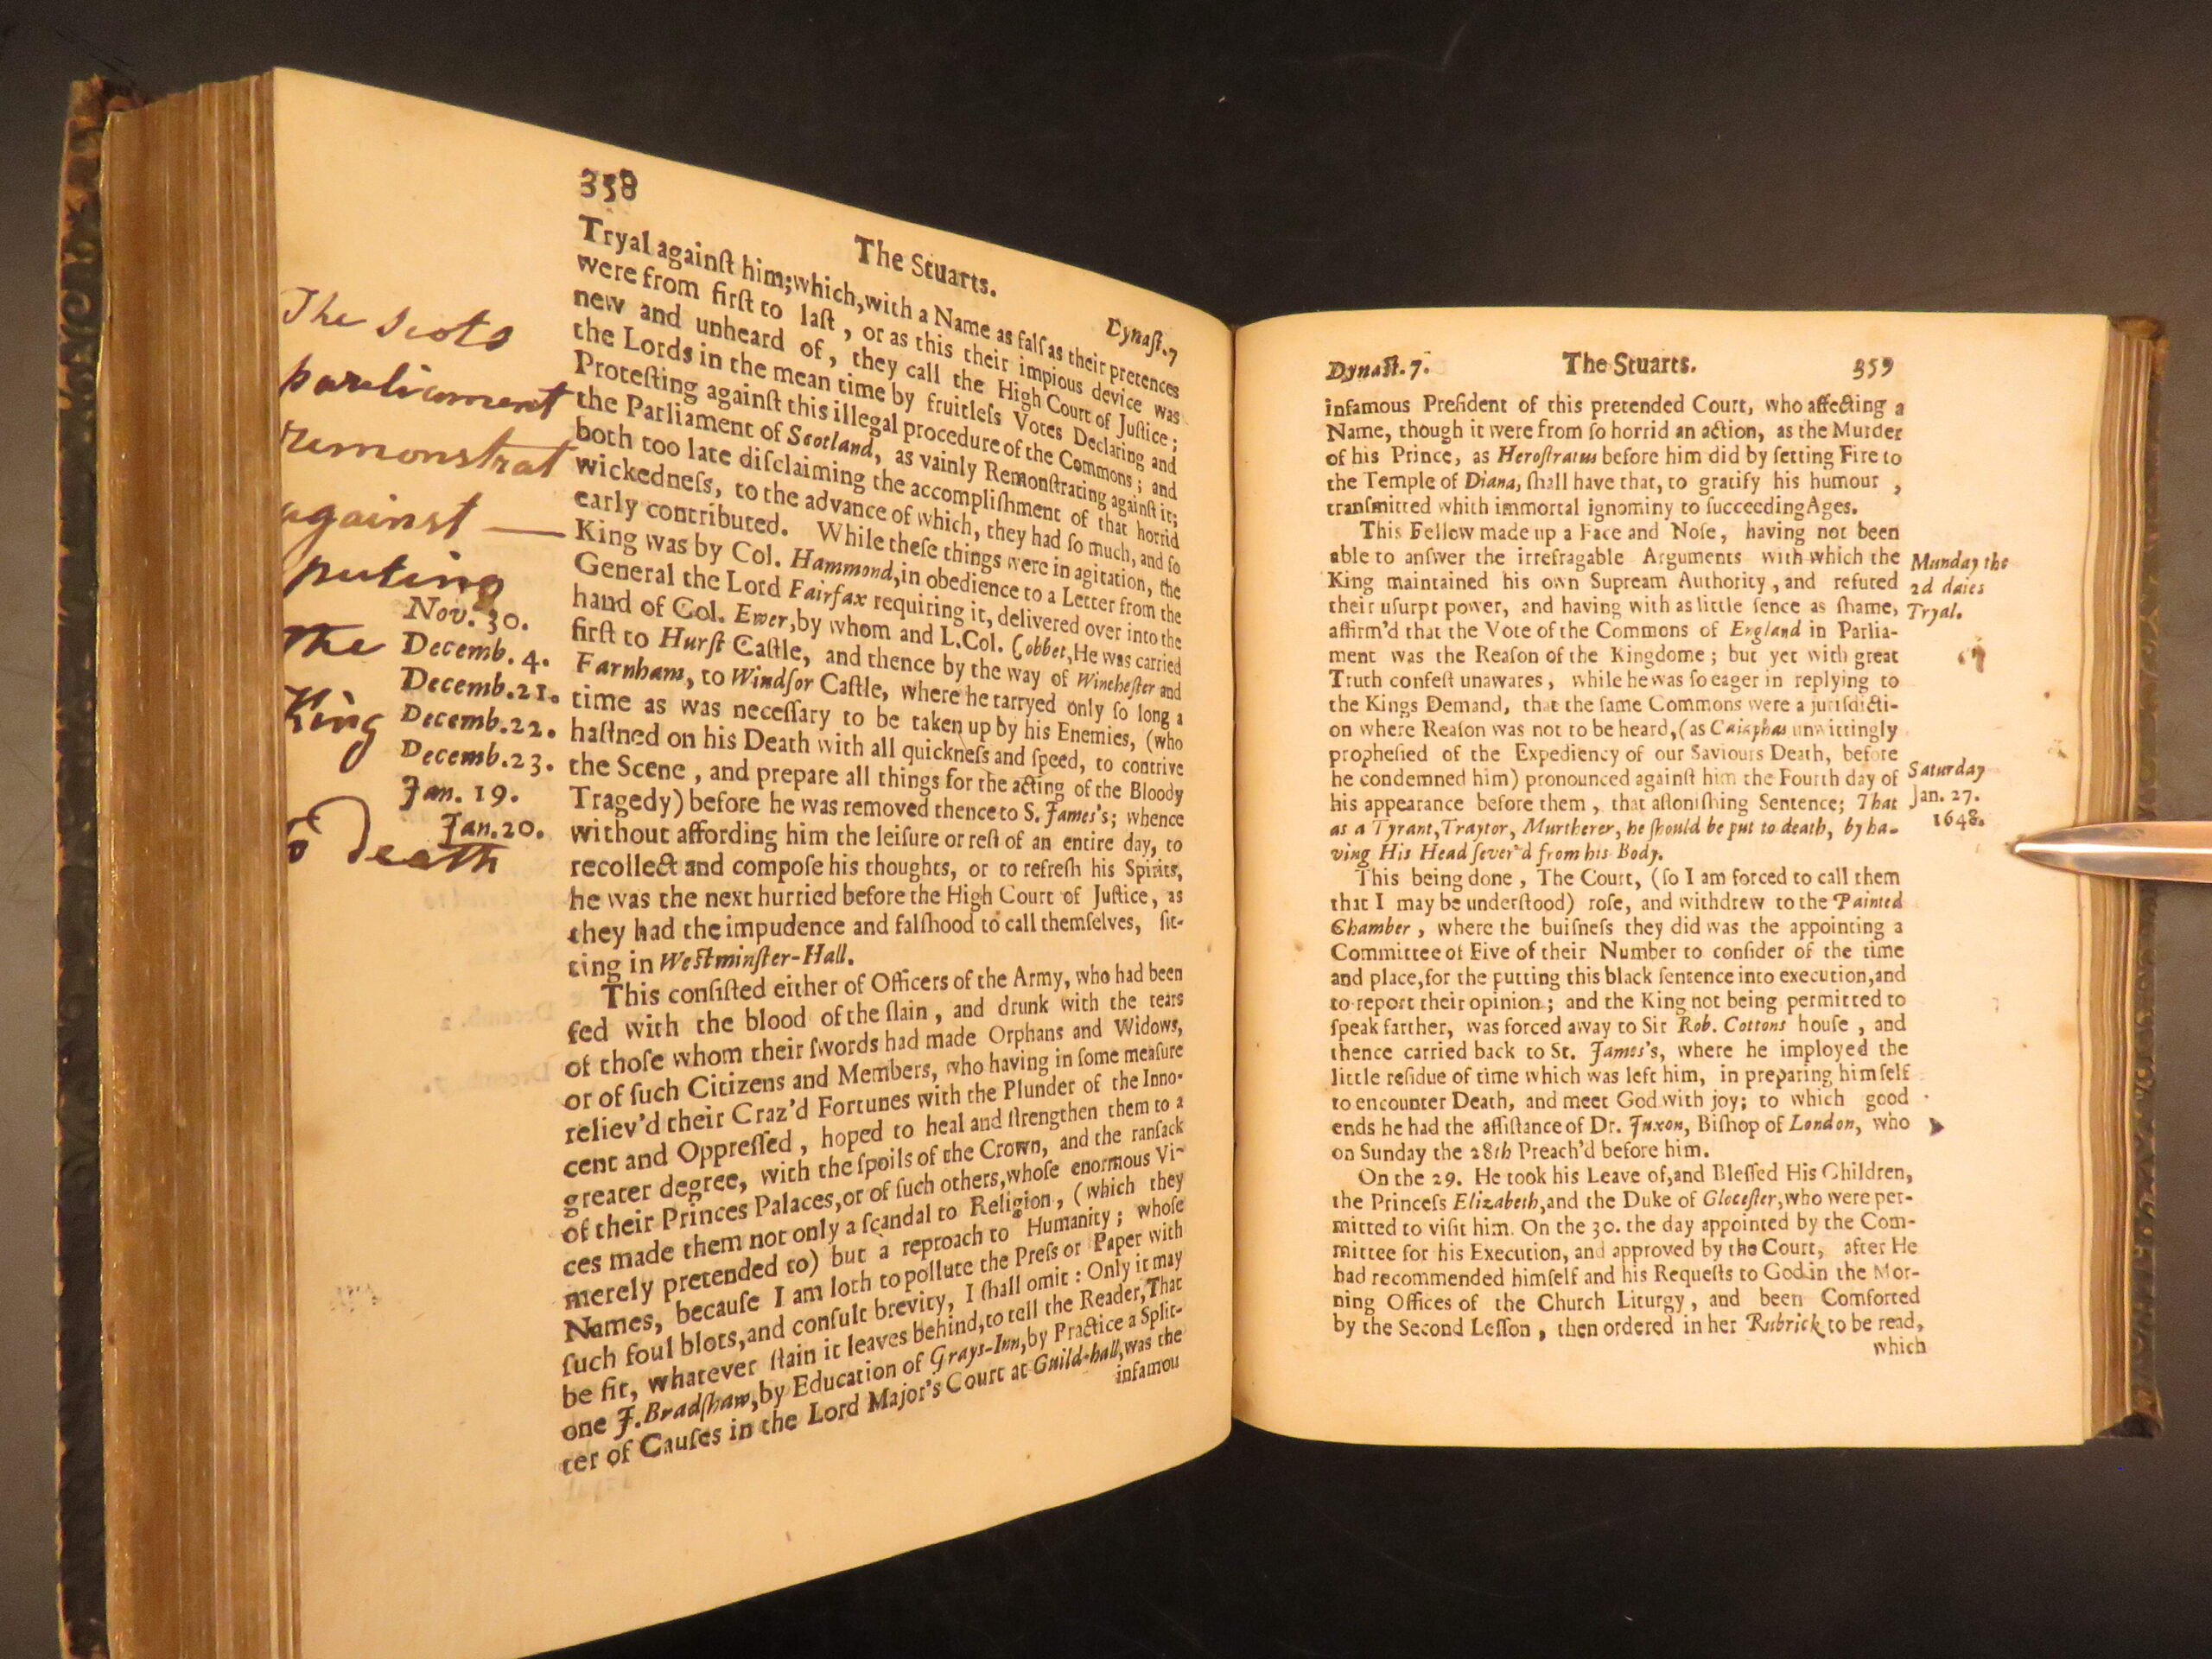 358
The Stuarts.
Dynaſt.7
Tryal againſt him; which, with a Name as falſ as their pretences
were from firſt to laſt, or as this their impious device was
new and unheard of, they call the High Court of Juſtice;
the Lords in the mean time by fruitleſs Votes Declaring and
Proteſting againſt this illegal procedure of the Commons; and
the Parliament of Scotland, as vainly Remonſtrating againſt it;
both too late diſclaiming the accompliſhment of that horrid
wickedneſs, to the advance of which, they had ſo much, and ſo
early contributed. While theſe things were in agitation, the
King was by Col. Hammond, in obedience to a Letter from the
General the Lord Fairfax requiring it, delivered over into the
hand of Col. Ewer, by whom and L.Col. Cobbet, He was carried
firſt to Hurſt Caſtle, and thence by the way of Wincheſter and
Farnham, to Windſor Caſtle, where he tarryed only ſo long a
time as was neceſſary to be taken up by his Enemies, (who
haſtned on his Death with all quickneſs and ſpeed, to contrive
the Scene, and prepare all things for the acting of the Bloody
Tragedy) before he was removed thence to S. James's; whence
without affording him the leiſure or reſt of an entire day, to
recollect and compoſe his thoughts, or to refreſh his Spirits,
he was the next hurried before the High Court of Juſtice, as
they had the impudence and falſhood to call themſelves, ſit-
ting in Weſtminſter-Hall.
This conſiſted either of Officers of the Army, who had been
fed with the blood of the ſlain, and drunk with the tears
of thoſe whom their ſwords had made Orphans and Widows,
or of ſuch Citizens and Members, who having in ſome meaſure
reliev'd their Craz'd Fortunes with the Plunder of the Inno-
cent and Oppreſſed, hoped to heal and ſtrengthen them to a
greater degree, with the ſpoils of the Crown, and the ranſack
of their Princes Palaces, or of ſuch others, whoſe enormous Vi-
ces made them not only a ſcandal to Religion, (which they
merely pretended to) but a reproach to Humanity; whoſe
Names, becauſe I am loth to pollute the Preſs or Paper with
ſuch foul blots, and conſult brevity, I ſhall omit: Only it may
be fit, whatever ſtain it leaves behind, to tell the Reader, That
one J. Bradſhaw, by Education of Grays-Inn, by Practice a Split-
ter of Cauſes in the Lord Major's Court at Guild-hall, was the
infamou
The Scots
parliament
remonstrat
against —
puting
the
King
to Death
Nov. 30.
Decemb. 4.
Decemb. 21.
Decemb. 22.
Decemb. 23.
Jan. 19.
Jan. 20.
Dynaſt. 7.
The Stuarts.
359
infamous Preſident of this pretended Court, who affecting a
Name, though it were from ſo horrid an action, as the Murder
of his Prince, as Heroſtratus before him did by ſetting Fire to
the Temple of Diana, ſhall have that, to gratify his humour,
tranſmitted which immortal ignominy to ſucceeding Ages.
This Fellow made up a Face and Noſe, having not been
able to anſwer the irrefragable Arguments with which the
King maintained his own Supream Authority, and refuted
their uſurpt power, and having with as little ſence as ſhame,
affirm'd that the Vote of the Commons of England in Parlia-
ment was the Reaſon of the Kingdome; but yet with great
Truth confeſt unawares, while he was ſo eager in replying to
the Kings Demand, that the ſame Commons were a juriſdicti-
on where Reaſon was not to be heard, (as Caiaphas unwittingly
propheſied of the Expediency of our Saviours Death, before
he condemned him) pronounced againſt him the Fourth day of
his appearance before them, that aſtoniſhing Sentence; That
as a Tyrant, Traytor, Murtherer, he ſhould be put to death, by ha-
ving His Head ſever'd from his Body.
This being done, The Court, (ſo I am forced to call them
that I may be underſtood) roſe, and withdrew to the Painted
Chamber, where the buiſneſs they did was the appointing a
Committee of Five of their Number to conſider of the time
and place, for the putting this black ſentence into execution, and
to report their opinion; and the King not being permitted to
ſpeak farther, was forced away to Sir Rob. Cottons houſe, and
thence carried back to St. James's, where he imployed the
little reſidue of time which was left him, in preparing himſelf
to encounter Death, and meet God with joy; to which good
ends he had the aſſiſtance of Dr. Juxon, Biſhop of London, who
on Sunday the 28th Preach'd before him.
On the 29. He took his Leave of, and Bleſſed His Children,
the Princeſs Elizabeth, and the Duke of Gloceſter, who were per-
mitted to viſit him. On the 30. the day appointed by the Com-
mittee for his Execution, and approved by the Court, after He
had recommended himſelf and his Requeſts to God in the Mor-
ning Offices of the Church Liturgy, and been Comforted
by the Second Leſſon, then ordered in her Rubrick to be read,
which
Munday the
2d daies
Tryal.
Saturday
Jan. 27.
1648.